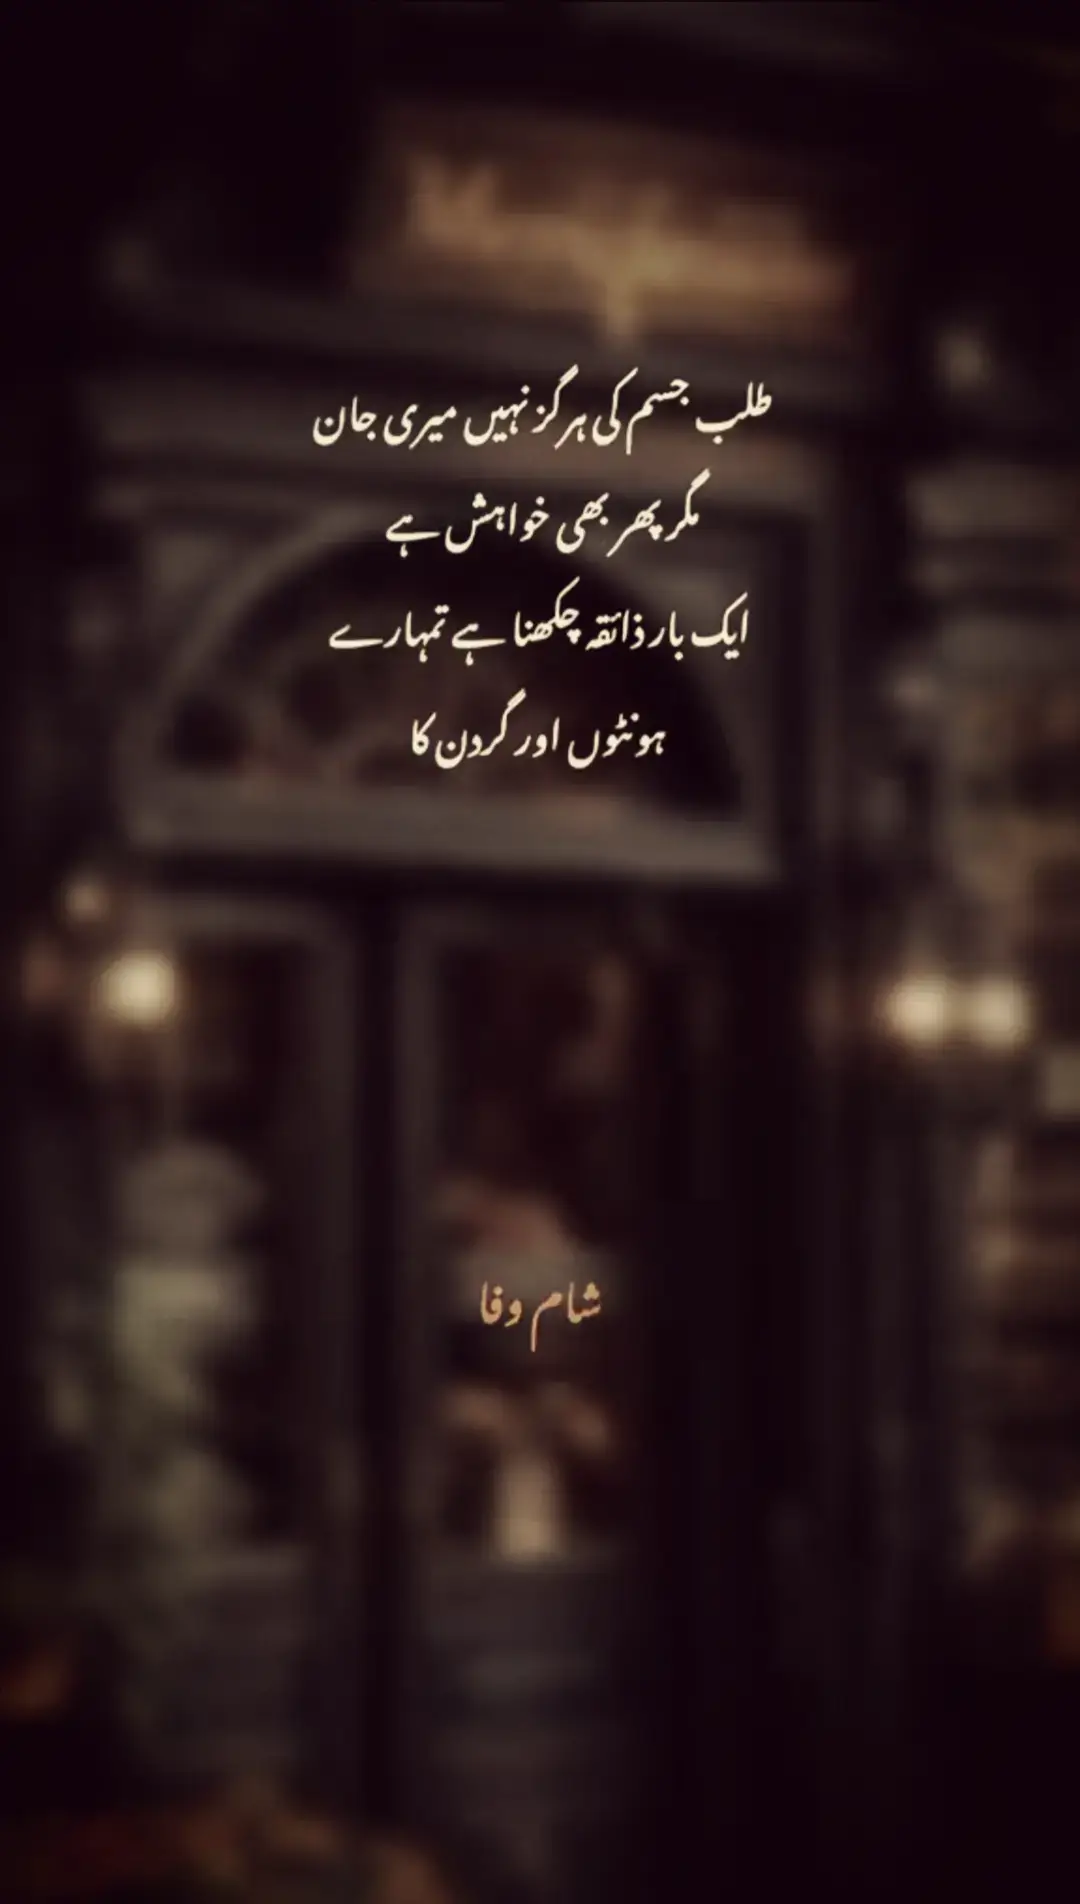 طلب جسم کی ہرگز نہیں میری جان
مگر پھر بھی خواہش ہے
ایک بار ذائقہ چکھنا ہے تمہارے
ہونٹوں اور گردن کا
شام وفا